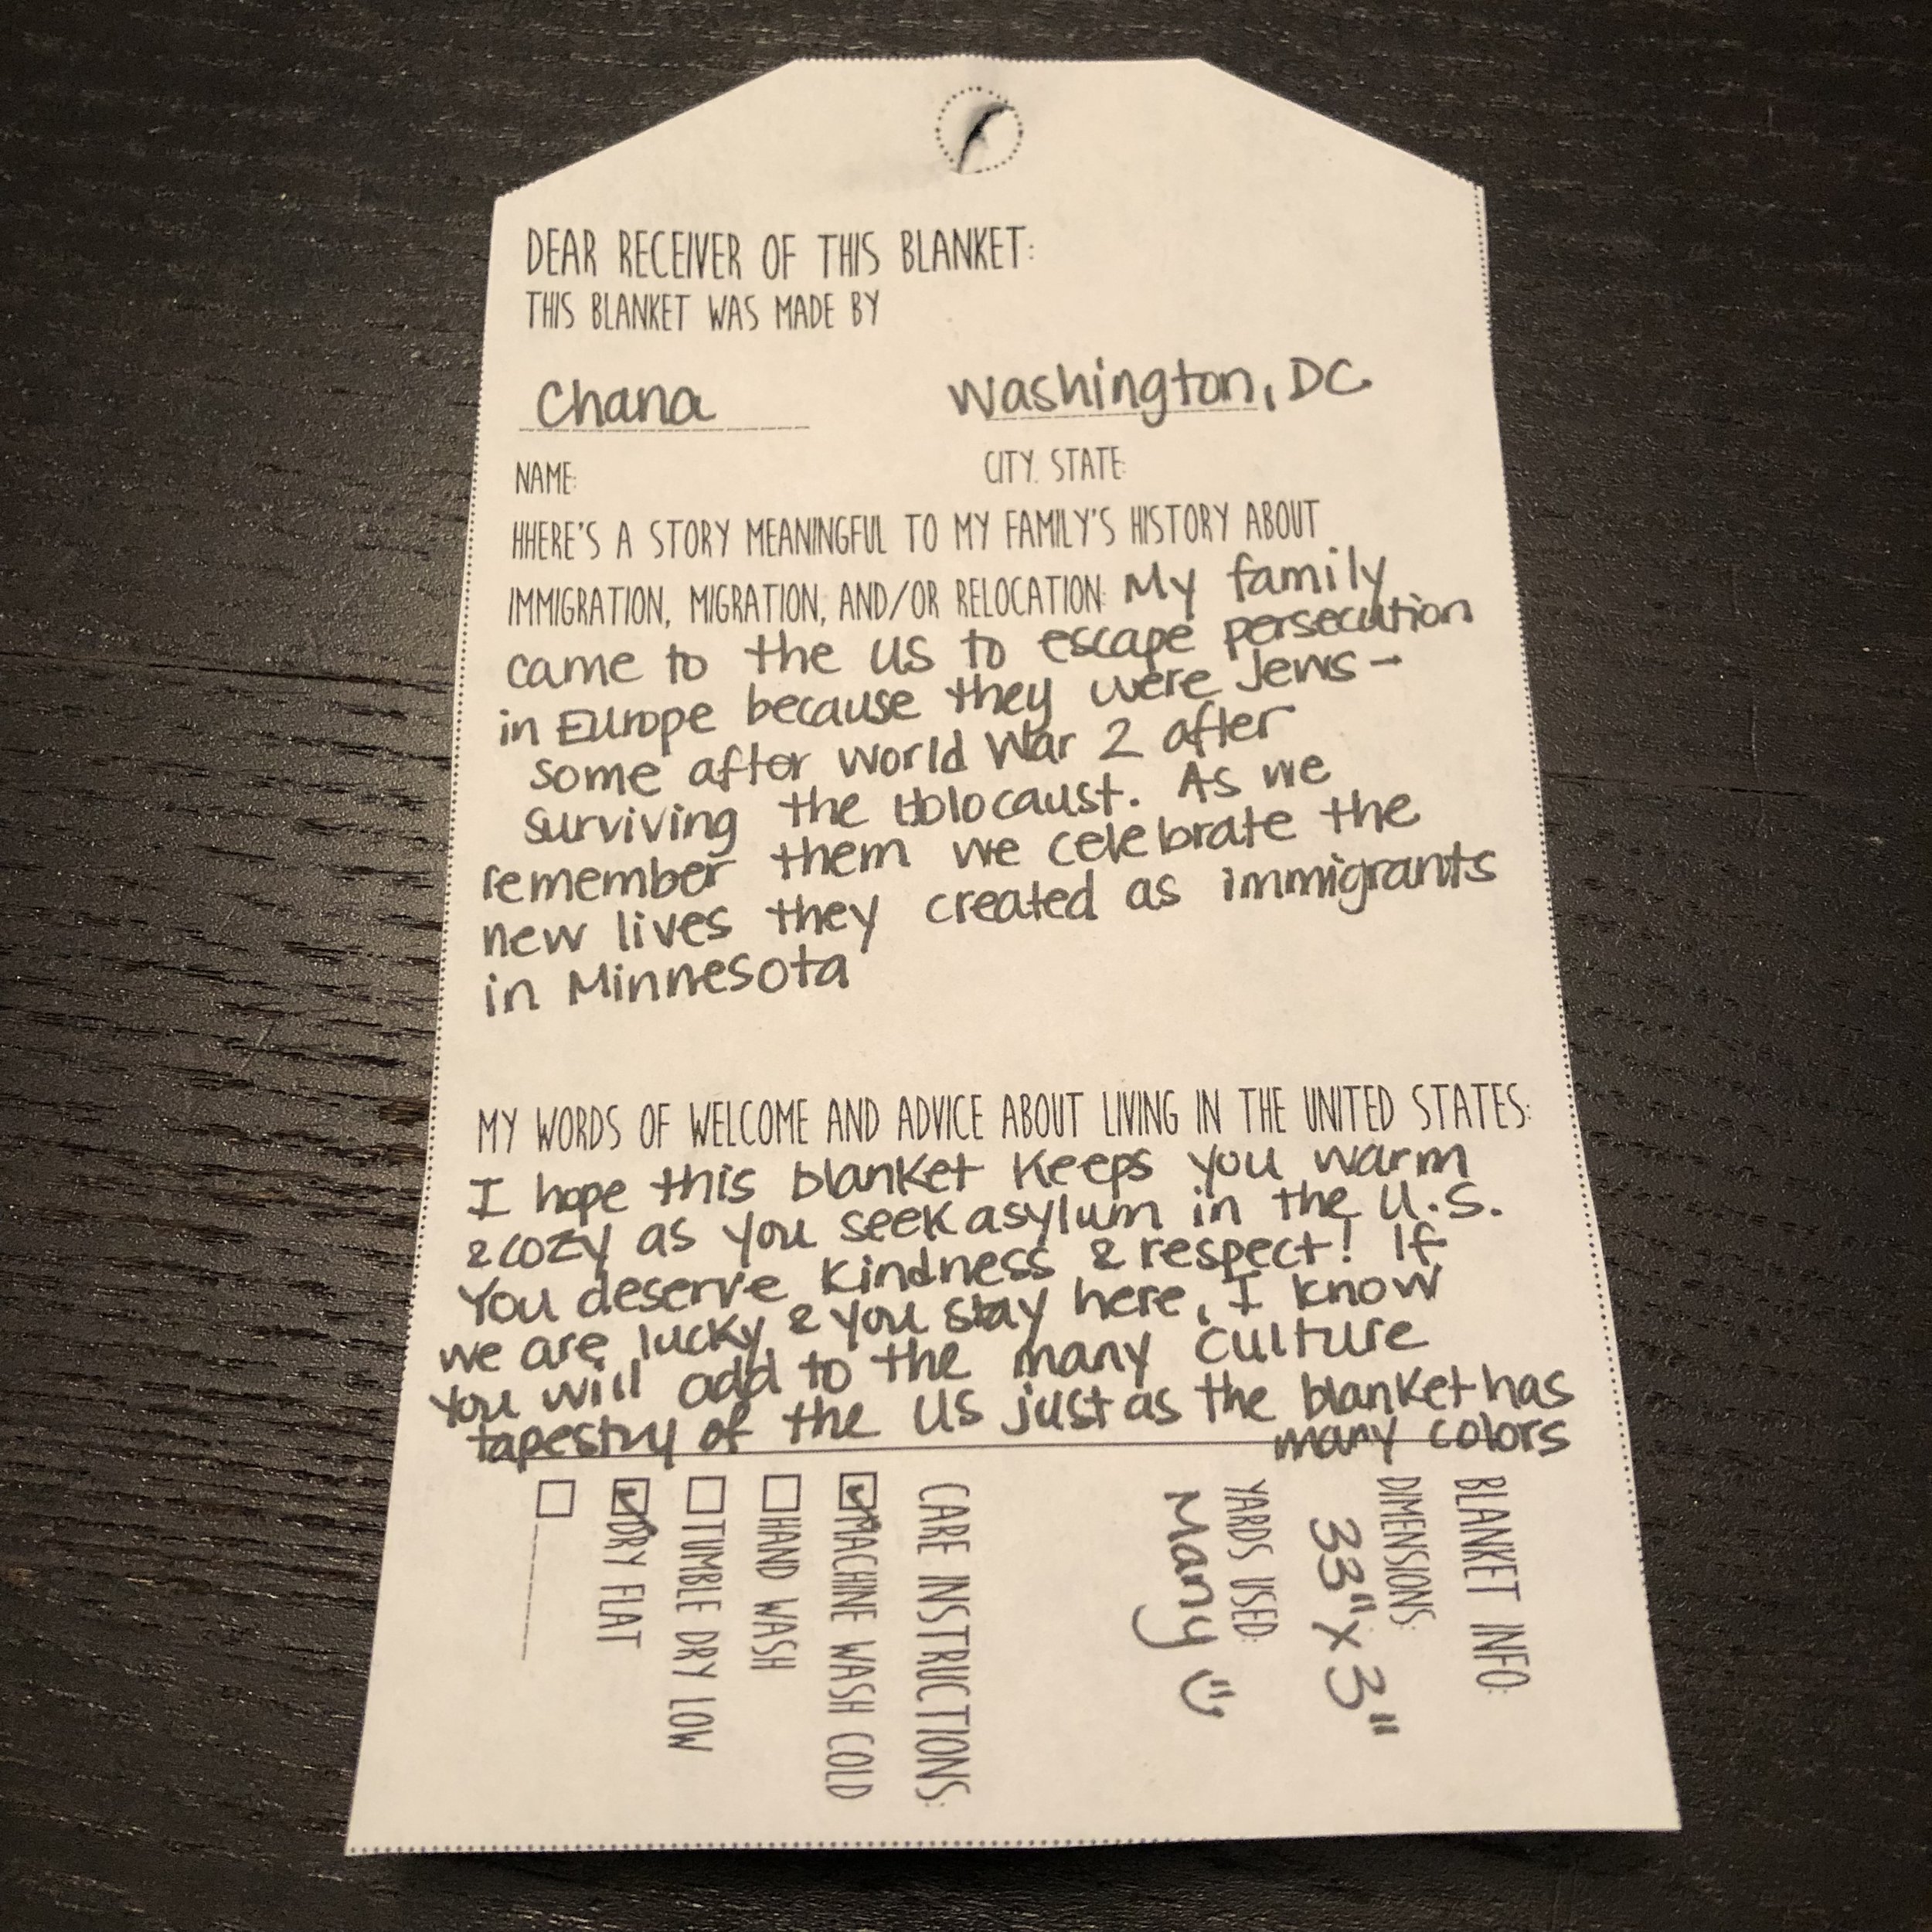 DEAR RECEIVER OF THIS BLANKET:
THIS BLANKET WAS MADE BY
Chana Washington, DC
NAME: CITY, STATE:
HHERE'S A STORY MEANINGFUL TO MY FAMILY'S HISTORY ABOUT
IMMIGRATION, MIGRATION, AND/OR RELOCATION: My family
came to the US to escape persecution
in Europe because they were Jews -
some after World War 2 after
surviving the Holocaust. As we
remember them we celebrate the
new lives they created as immigrants
in Minnesota
MY WORDS OF WELCOME AND ADVICE ABOUT LIVING IN THE UNITED STATES:
I hope this blanket keeps you warm
& cozy as you seek asylum in the U.S.
You deserve kindness & respect! If
we are lucky & you stay here, I know
you will add to the many culture
tapestry of the US just as the blanket has
many colors
BLANKET INFO:
DIMENSIONS:
33" x 3"
YARDS USED:
Many
CARE INSTRUCTIONS:
MACHINE WASH COLD
HAND WASH
TUMBLE DRY LOW
DRY FLAT